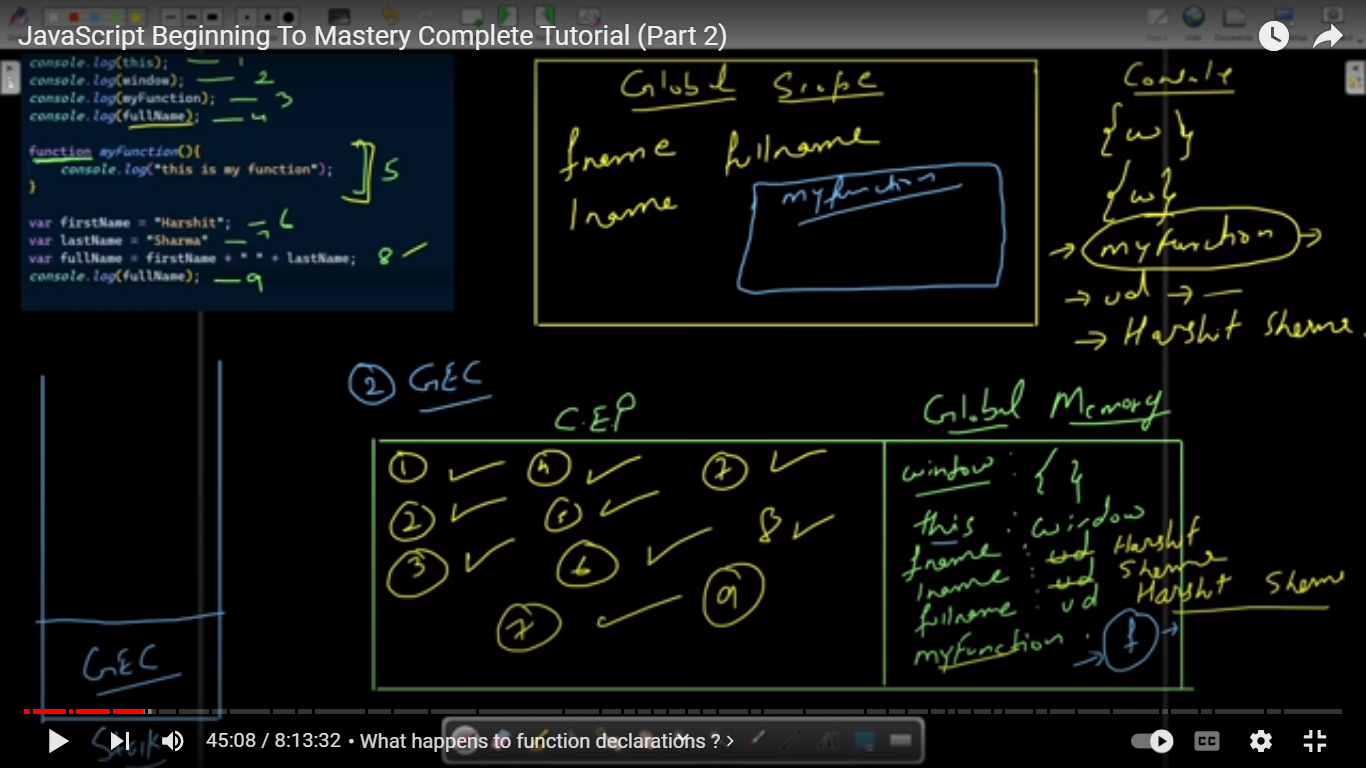 JavaScript Beginning To Mastery Complete Tutorial (Part 2)
console.log(this); — 1
console.log(window); — 2
console.log(myFunction); — 3
console.log(fullName); — 4
function myFunction(){
console.log("this is my function");
}
5
var firstName = "Harshit"; — 6
var lastName = "Sharma" — 7
var fullName = firstName + " " + lastName; 8
console.log(fullName); — 9
Global Scope
fname fullname
lname
myfunction
Console
{w}
{w}
→ myfunction →
→ ud → —
→ Harshit Sharma
② GEC
C.E.P
Global Memory
① ✓ ④ ✓ ⑦ ✓
② ✓ ⑤ ✓ 8 ✓
③ ✓ ⑥ ✓
⑦ ✓ ⑨
window : { }
this : window
fname : ud Harshit
lname : ud Sharma
fullname : ud Harshit Sharma
myfunction : → f →
GEC
Stack
45:08 / 8:13:32 • What happens to function declarations ? ›
CC